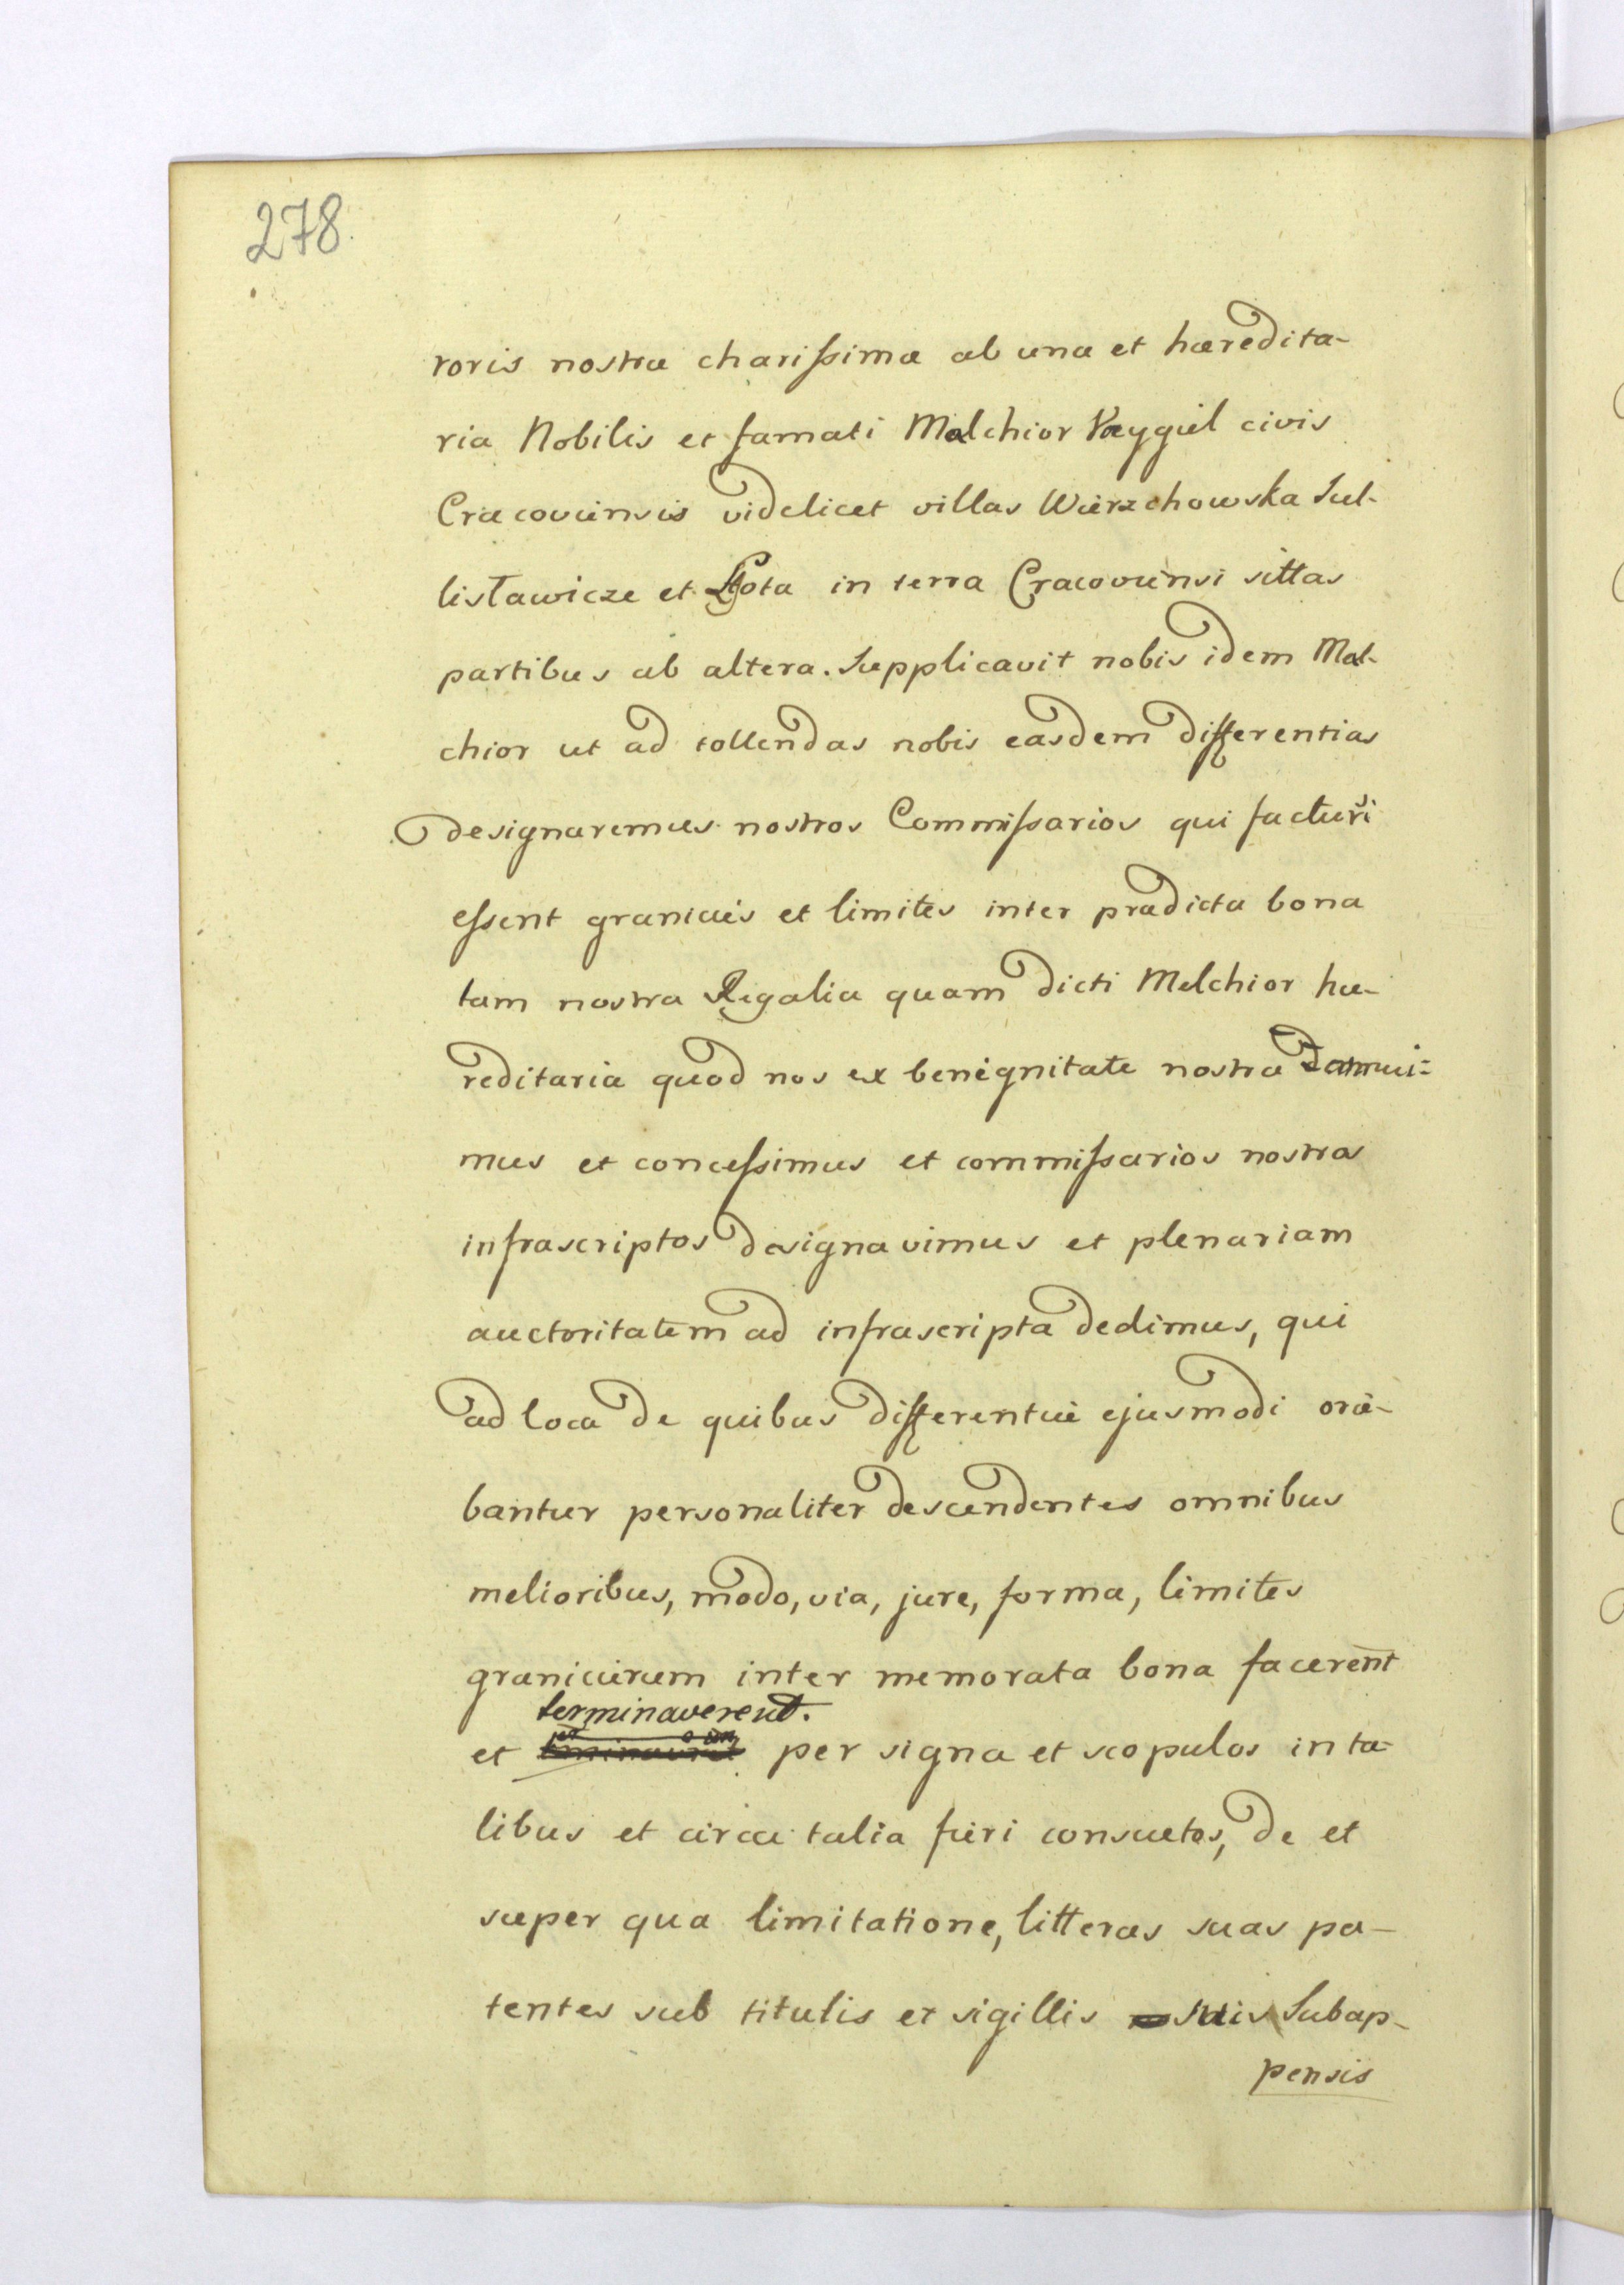 278.
roris nostræ charissimæ ab una et hæredita-
ria Nobilis et famati Melchior Veygiel civis
Cracoviensis videlicet villas Wierzchowska Sul-
listawicze et Lgota in terra Cracoviensi sittas
partibus ab altera. Supplicavit nobis idem Mel-
chior ut ad tollendas nobis easdem differentias
designaremus nostros Commissarios qui facturi
essent granicies et limites inter prædicta bona
tam nostra Regalia quam dicti Melchior hæ-
reditaria quod nos ex benignitate nostra
mus et concessimus et commissarios nostros
infrascriptos designavimus et plenariam
auctoritatem ad infrascripta dedimus, qui
ad loca de quibus differentiæ ejusmodi orie-
bantur personaliter descendentes omnibus
melioribus, modo, via, jure, forma, limites
granicierum inter memorata bona facerent
terminaverent.
et per signa et scopulos in ta-
libus et circa talia fieri consuetos, de et
super qua limitatione, litteras suas pa-
tentes sub titulis et sigillis suis Subap-
pensis